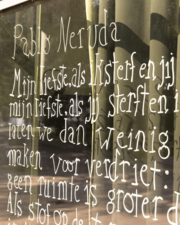 Pablo Neruda
Mijn liefste, als ik sterf en jij
mijn liefste, als jij sterft en i
laten we dan weinig
maken voor verdriet:
geen ruimte is groter d
Als stof op de